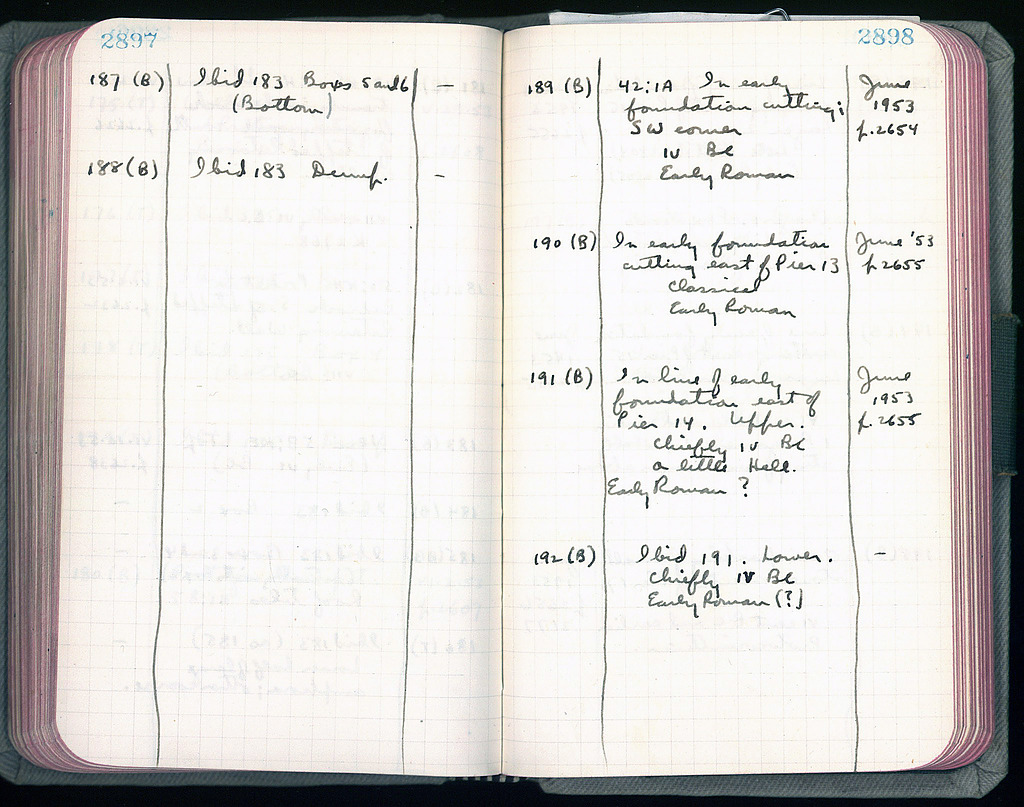 2897
187 (B) Ibid 183 Boxes 5 and 6 –
(Bottom)
188 (B) Ibid 183 Dump. –
2898
189 (B) 42:1A In early June
foundation cutting; 1953
SW corner p. 2654
IV BC
Early Roman
190 (B) In early foundation June '53
cutting east of Pier 13 p. 2655
Classical
Early Roman
191 (B) In line of early June
foundation east of 1953
Pier 14. Upper. p. 2655
Chiefly IV BC
a little Hell.
Early Roman ?
192 (B) Ibid 191. Lower. –
Chiefly IV BC
Early Roman (?)